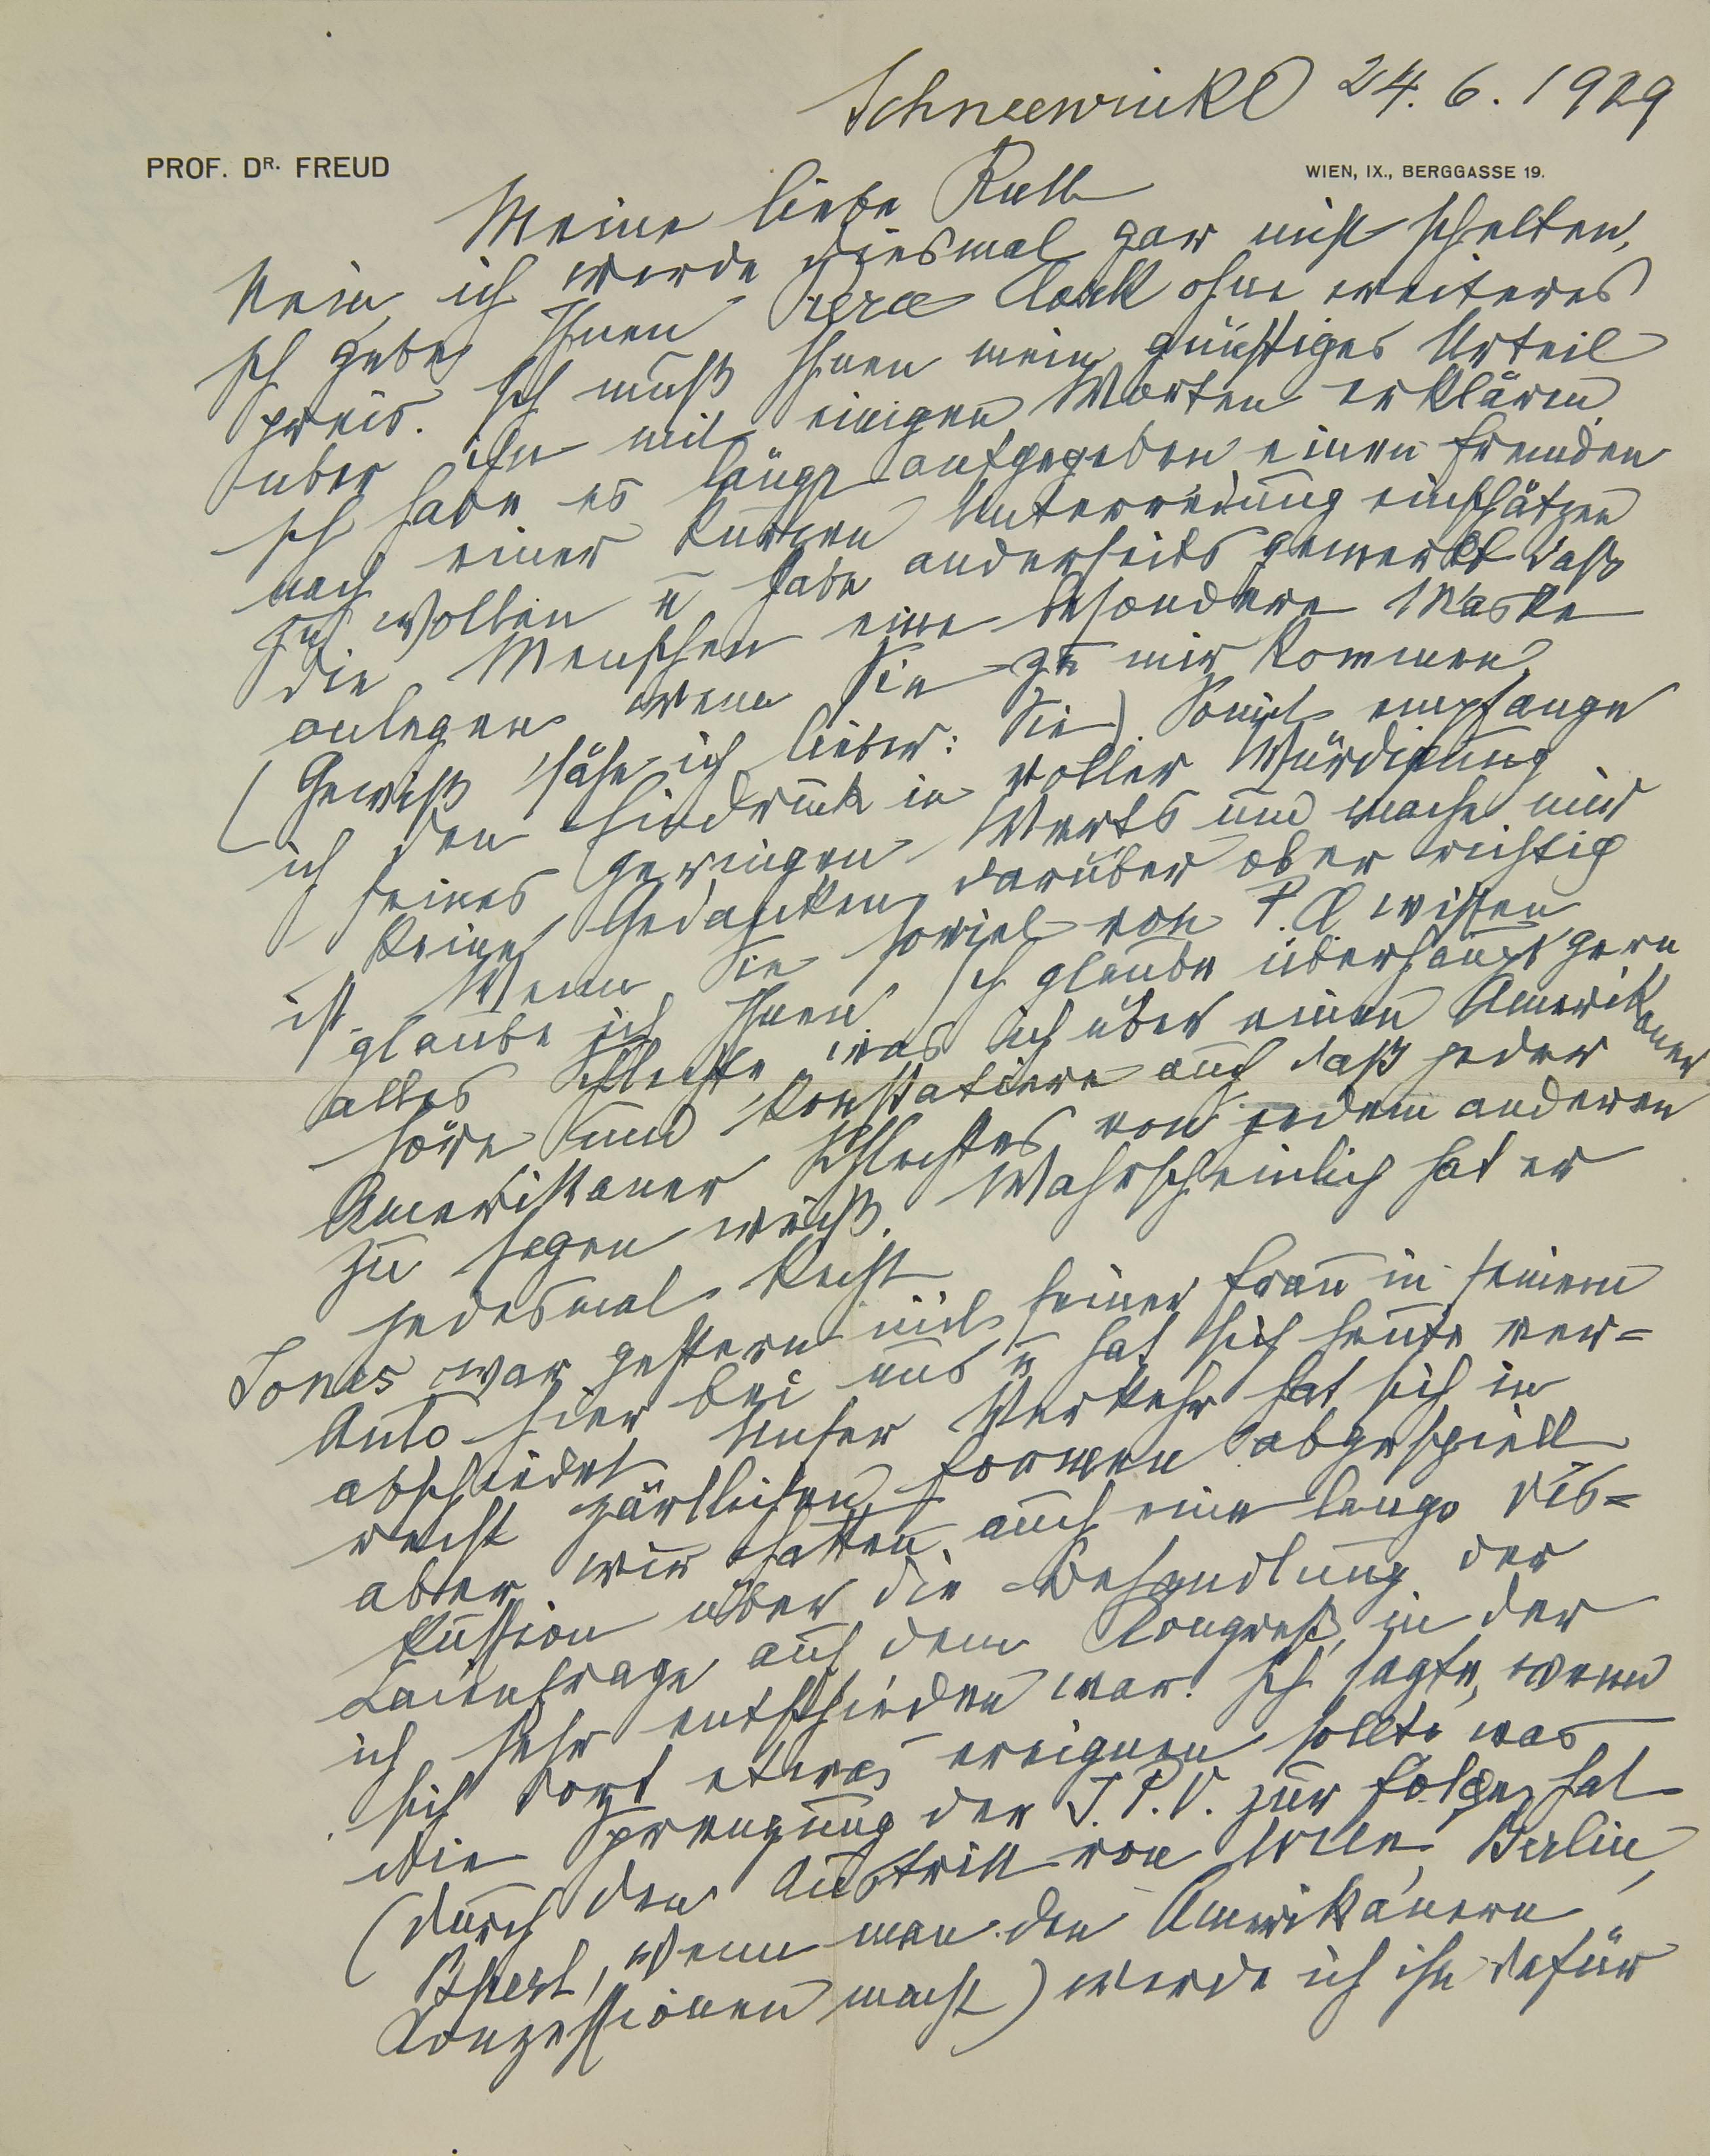 Schneewinkl 24.6.1929
PROF. DR. FREUD
WIEN, IX., BERGGASSE 19.
Meine liebe Ruth
Nein, ich werde diesmal gar nicht schelten,
ich gebe Ihnen Clark ohne weiteres
preis. Ich muß Ihnen mein günstiges Urteil
über ihn mit einigen Worten erklären.
Ich habe es längst aufgegeben einen Fremden
nach einer kurzen Unterredung einschätzen
zu wollen u habe anderseits gemerkt daß
die Menschen eine besondere Maske
anlegen wenn Sie zu mir kommen.
(Gewiß sähe ich lieber: sie). Somit empfange
ich den Eindruck in voller Würdigung
seines geringen Werts und mache mir
keine Gedanken darüber ob er richtig
ist. Wenn Sie soviel von P.A wissen
glaube ich Ihnen. Ich glaube überhaupt gern
alles Schlechte was ich über einen Amerikaner
höre und konstatiere auch daß jeder
Amerikaner Schlechtes von jedem anderen
zu sagen weiß. Wahrscheinlich hat er
jedesmal Recht.
Jones war gestern mit seiner Frau in seinem
Auto hier bei uns u hat sich heute ver=
abschiedet. Unser Verkehr hat sich in
recht zärtlichen Formen abgespielt
aber wir hatten auch eine lange Dis=
kussion über die Behandlung der
Laienfrage auf dem Kongreß, in der
ich sehr entschieden war. Ich sagte, wenn
sich dort etwas ereignen sollte was
die Sprengung der I.P.V. zur Folge hat
(durch den Austritt von Wien, Berlin,
Bpest, wenn man den Amerikanern
Konzessionen macht) werde ich ihn dafür